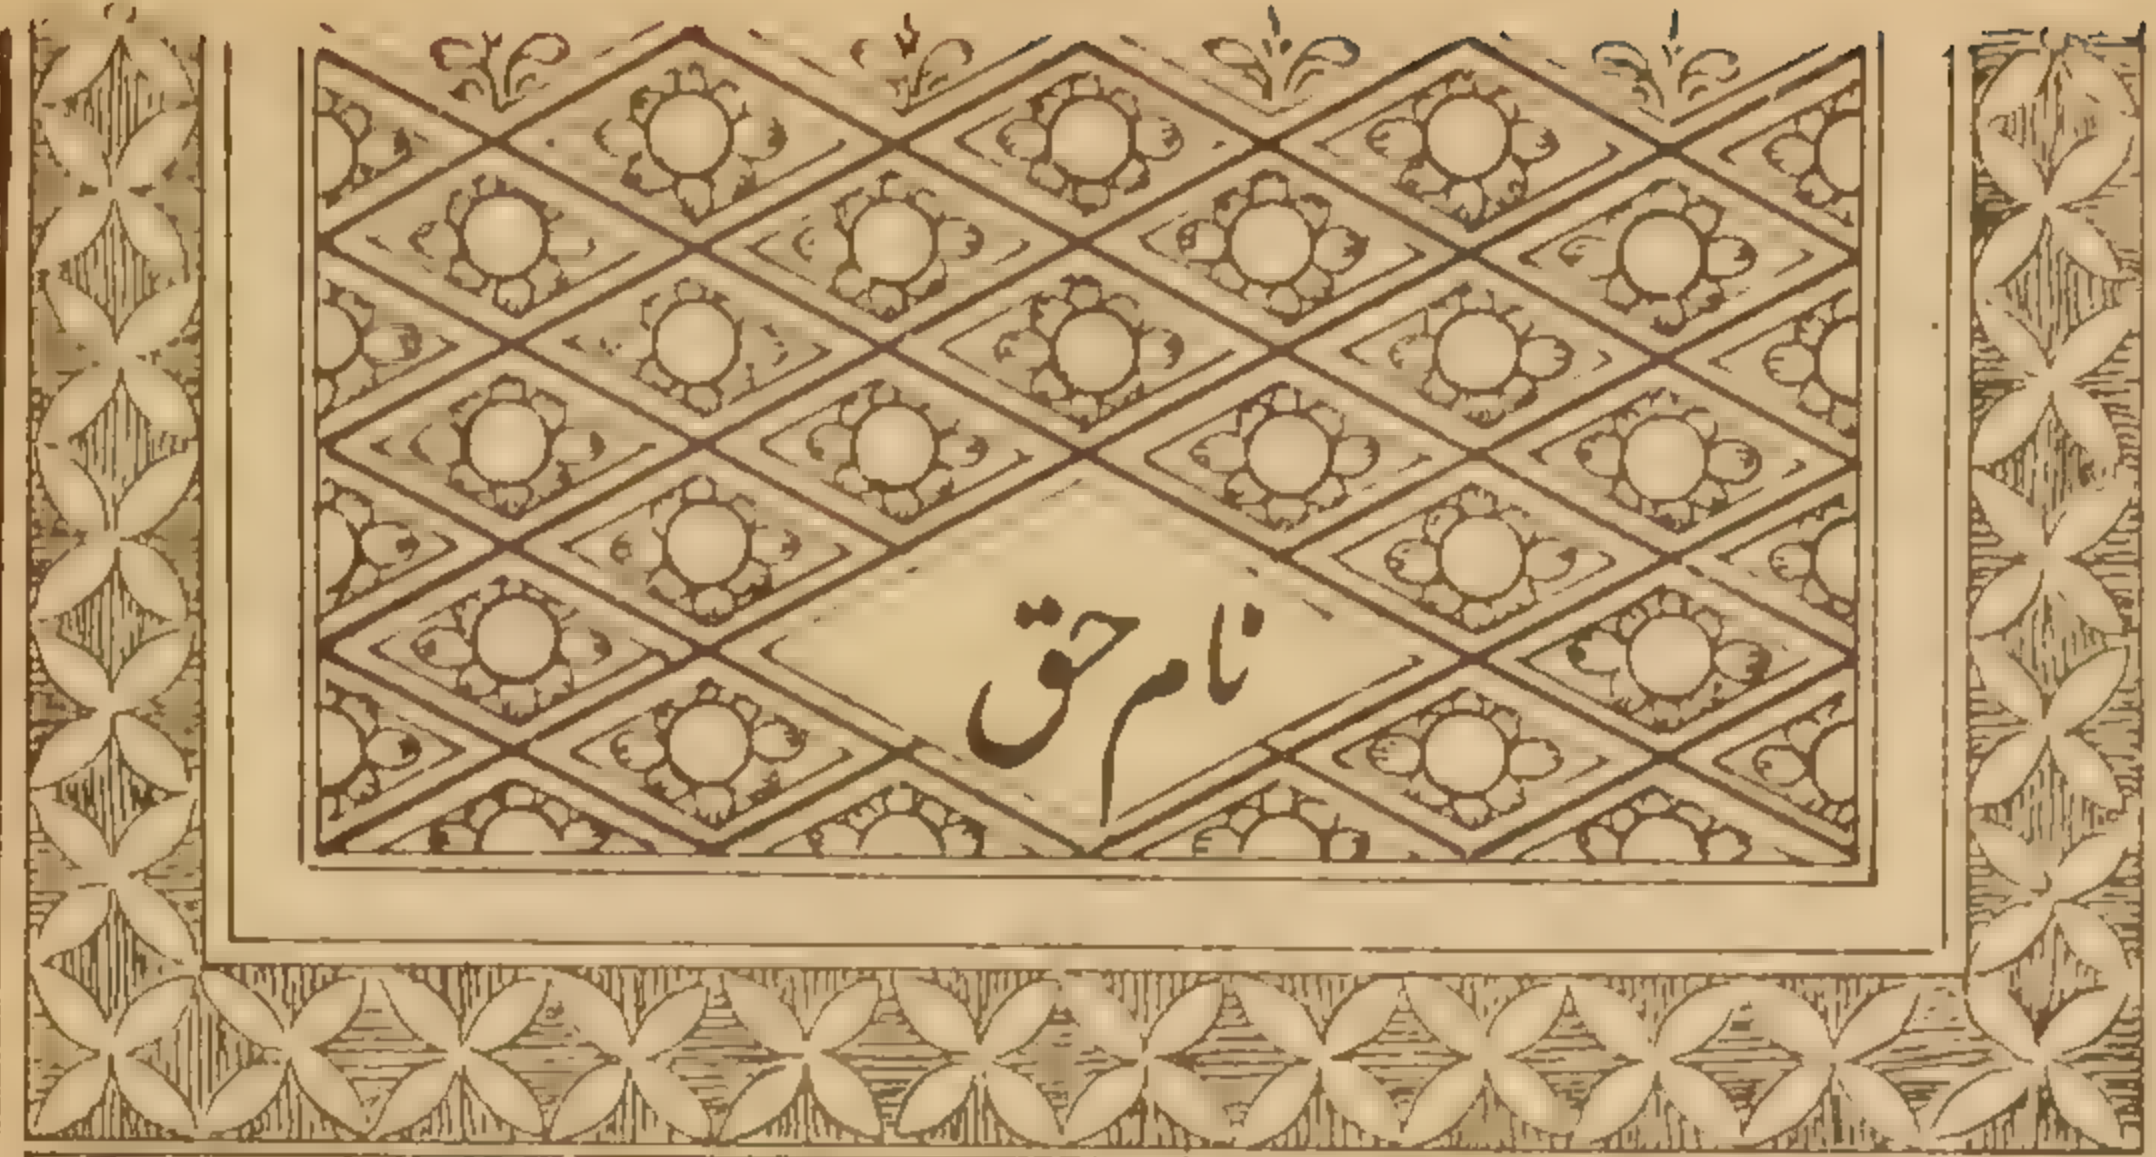 نام حق